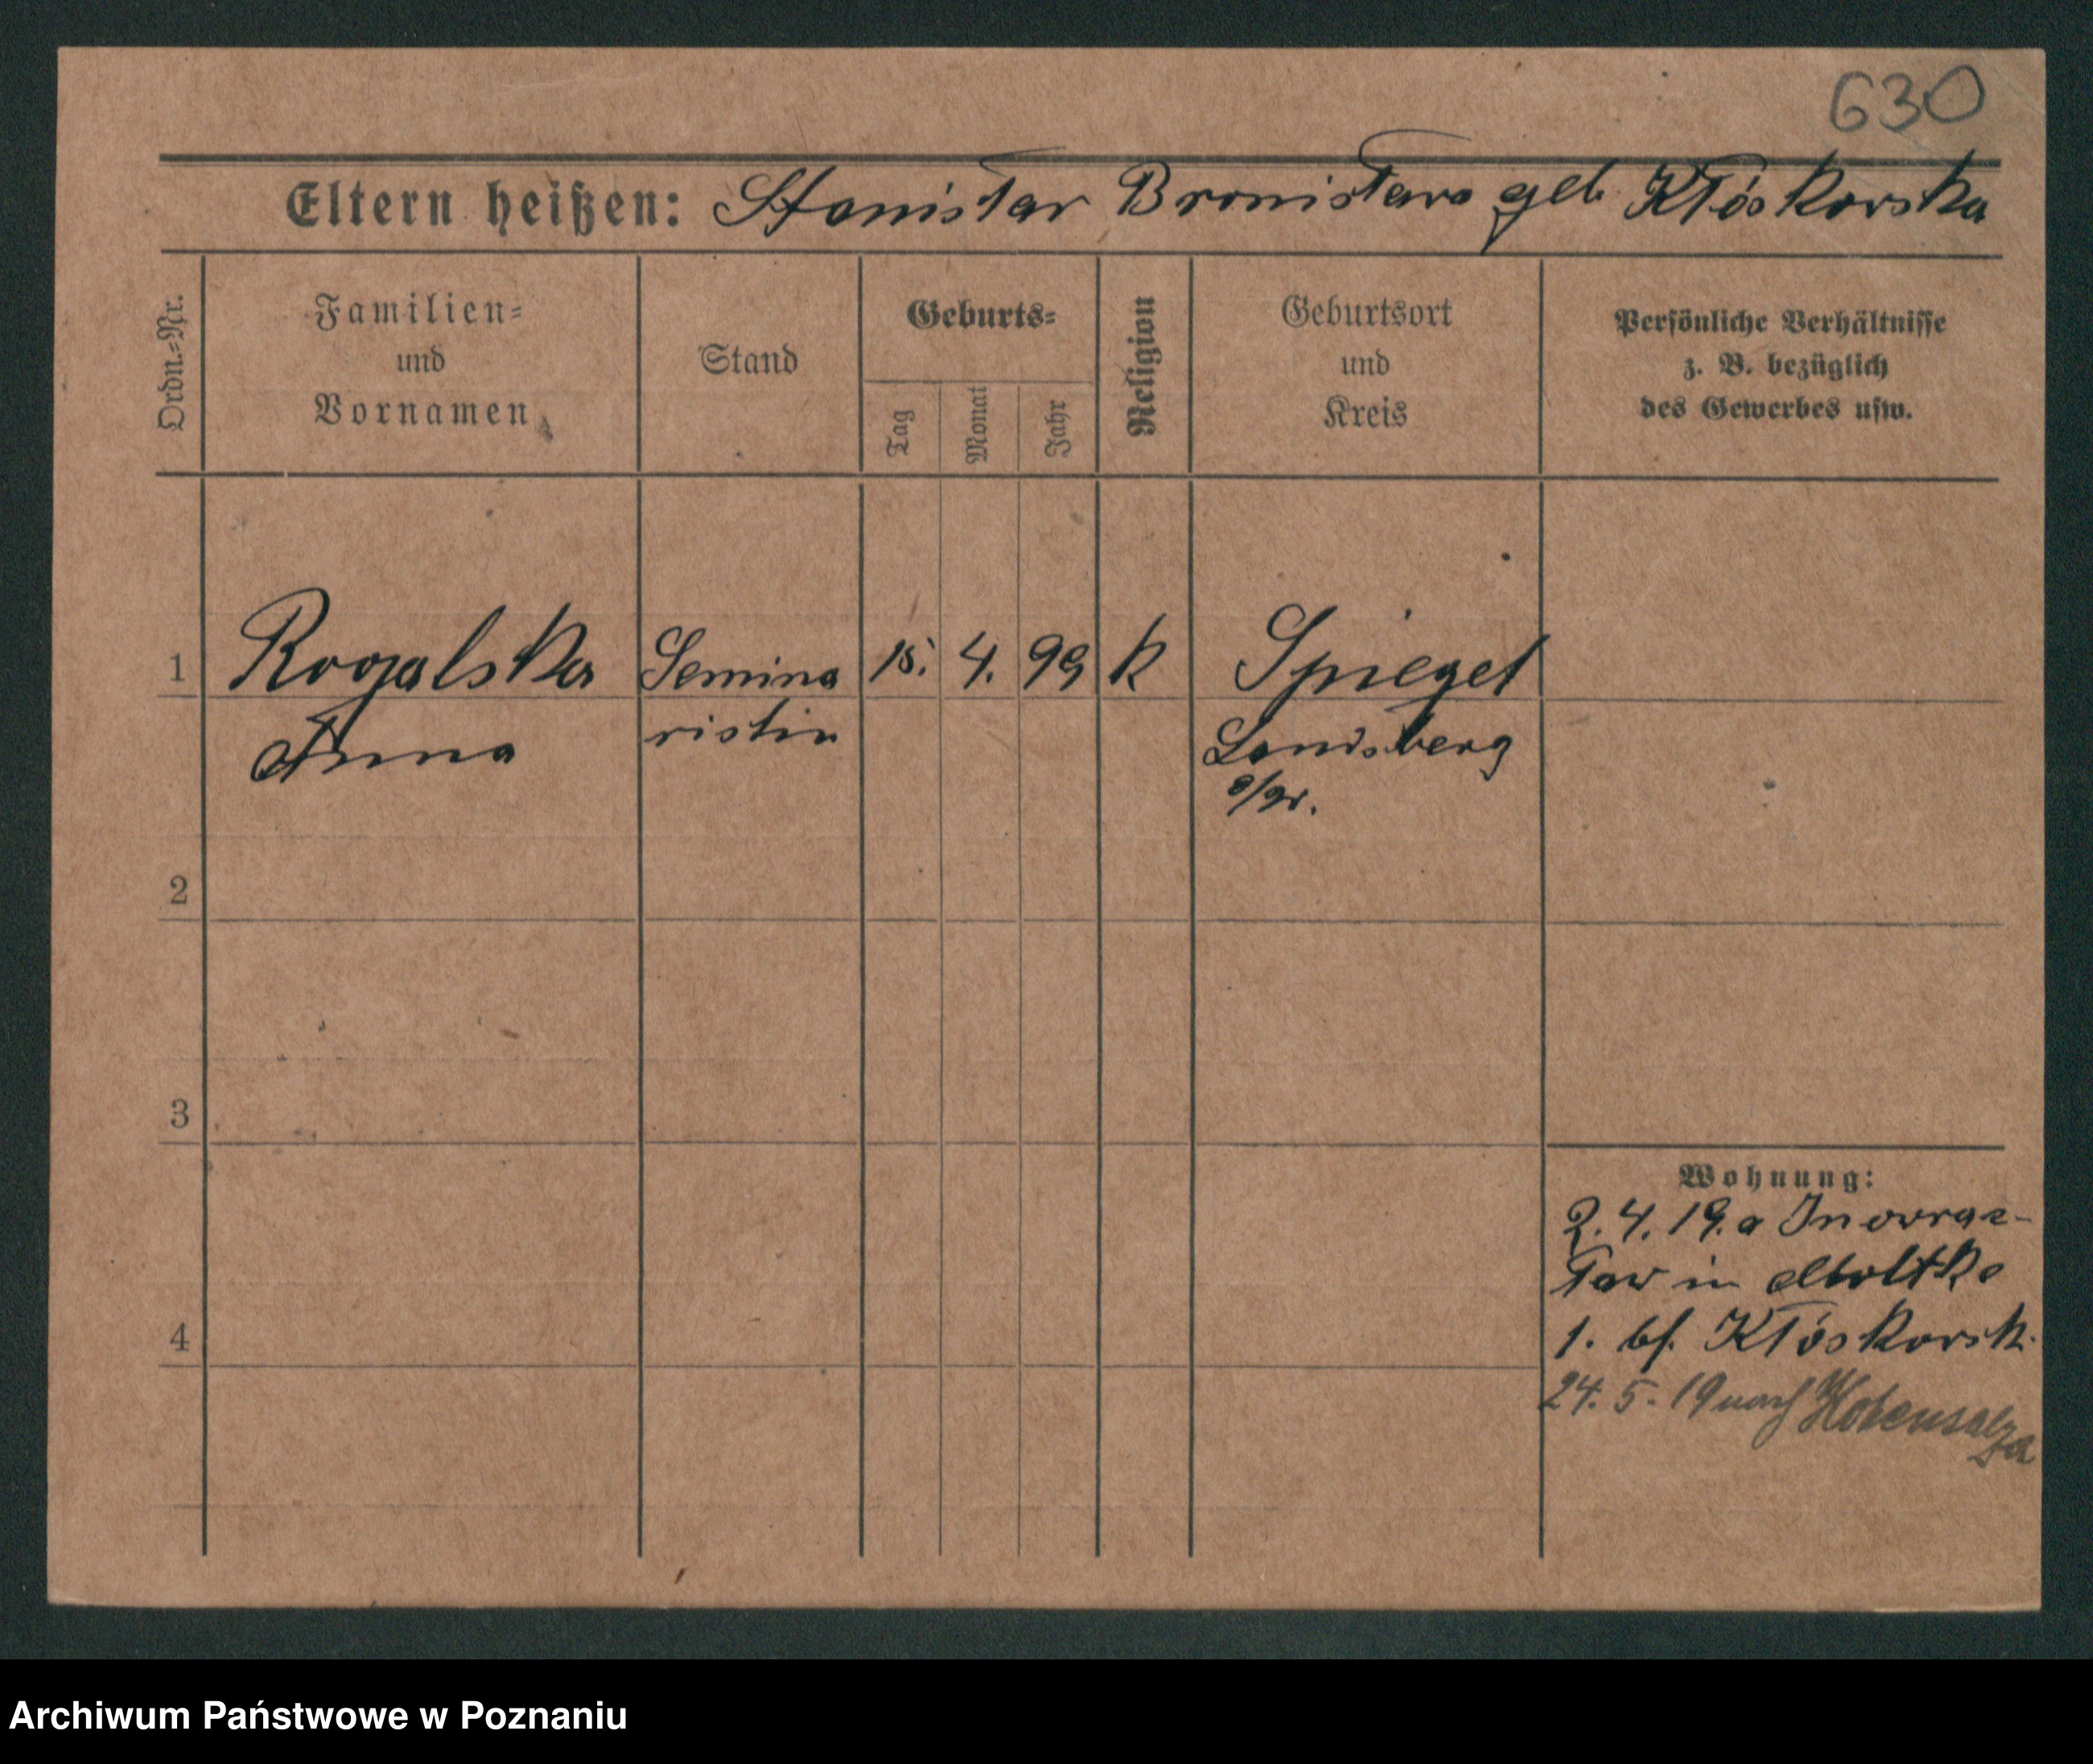 630
Eltern heißen: Stanisław Bronisława geb. Kłóskowska
Ordn.=Nr.
Familien=
und
Vornamen
Stand
Geburts=
Tag
Monat
Jahr
Religion
Geburtsort
und
Kreis
Persönliche Verhältnisse
z. B. bezüglich
des Gewerbes usw.
1 Rogalska Semina 15. 4. 99 k Spiegel
Anna ristin Landsberg
2
3
4
Wohnung:
2.4.19. a Inowraz-
ław in Moltke
1. bf. Kłóskowsk.
24. 5. 19 nach Hohensalza
Archiwum Państwowe w Poznaniu